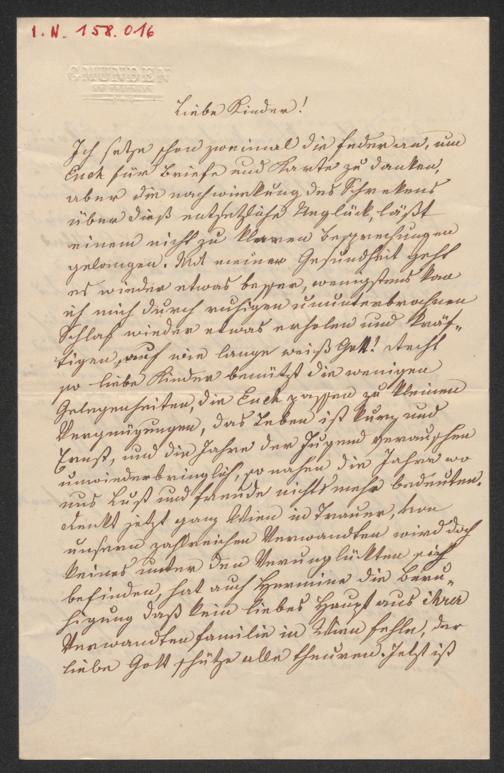 I.N. 158.016
GMUNDEN
Liebe Kinder!
Ich setze schon zweimal die Feder an, um
Euch für Briefe und Karte zu danken,
aber die nachwirkung des Schrekens
über dieß entsetzliche Unglück, läßt
einem nicht zu klaren besprechungen
gelangen. Mit meiner Gesundheit geht
es wieder etwas besser, wenigstens kan
ich mich durch ruhigen ununterbrochnen
Schlaf wieder etwas erholen und kräf-
tigen, auf wie lange weiß Gott! Recht
so liebe Kinder benützt die wenigen
Gelegenheiten, die Euch passen zu kleinen
Vergnügungen, das Leben ist kurz und
Ernst, und die Jahre der Jugend verrauschen
unwiederbringlich, so nahen die Jahre wo
uns Lust und Freude nichts mehr bedeuten.
Denkt jetzt ganz Wien in Trauer, von
unsern zahlreichen Verwandten wird doch
keines unter den Verunglückten sich
befinden, hat auch Hermine die Beru-
higung daß kein liebes Haupt aus ihrer
Verwandten familie in Wien fehle, der
liebe Gott schütze alle theuren. Jetzt ist